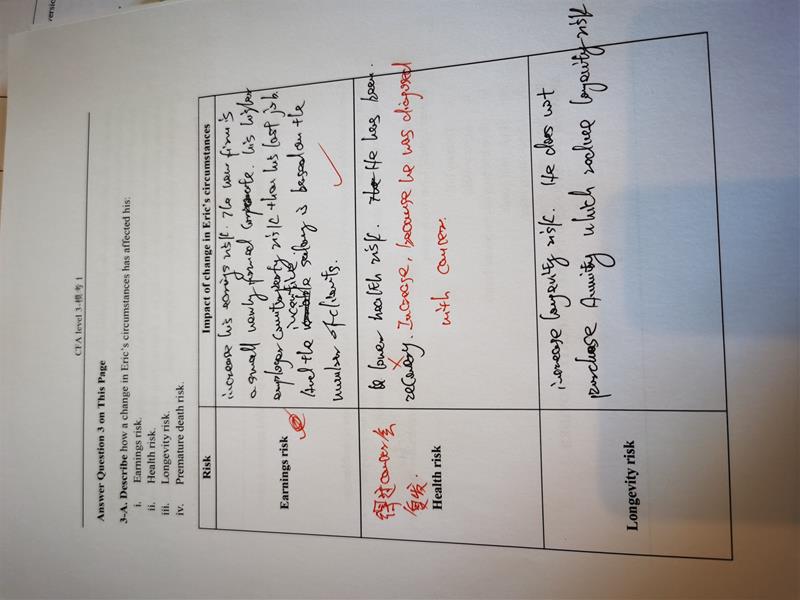 CFA level 3-模考 1
Answer Question 3 on This Page
3-A. Describe how a change in Eric's circumstances has affected his:
i. Earnings risk.
ii. Health risk.
iii. Longevity risk.
iv. Premature death risk.
Risk
Impact of change in Eric's circumstances
Earnings risk
increase his earnings risk. The new firm is
a small newly formed corporate. his higher
employer counterparty risk than his last job.
And the incentive salary is based on the
number of clients.
得过cancer会
复发.
Health risk
be lower health risk. He has been
recovery. Increase, because he was diagnosed
with cancer.
Longevity risk
increase longevity risk. He does not
purchase Annuity which reduce longevity risk